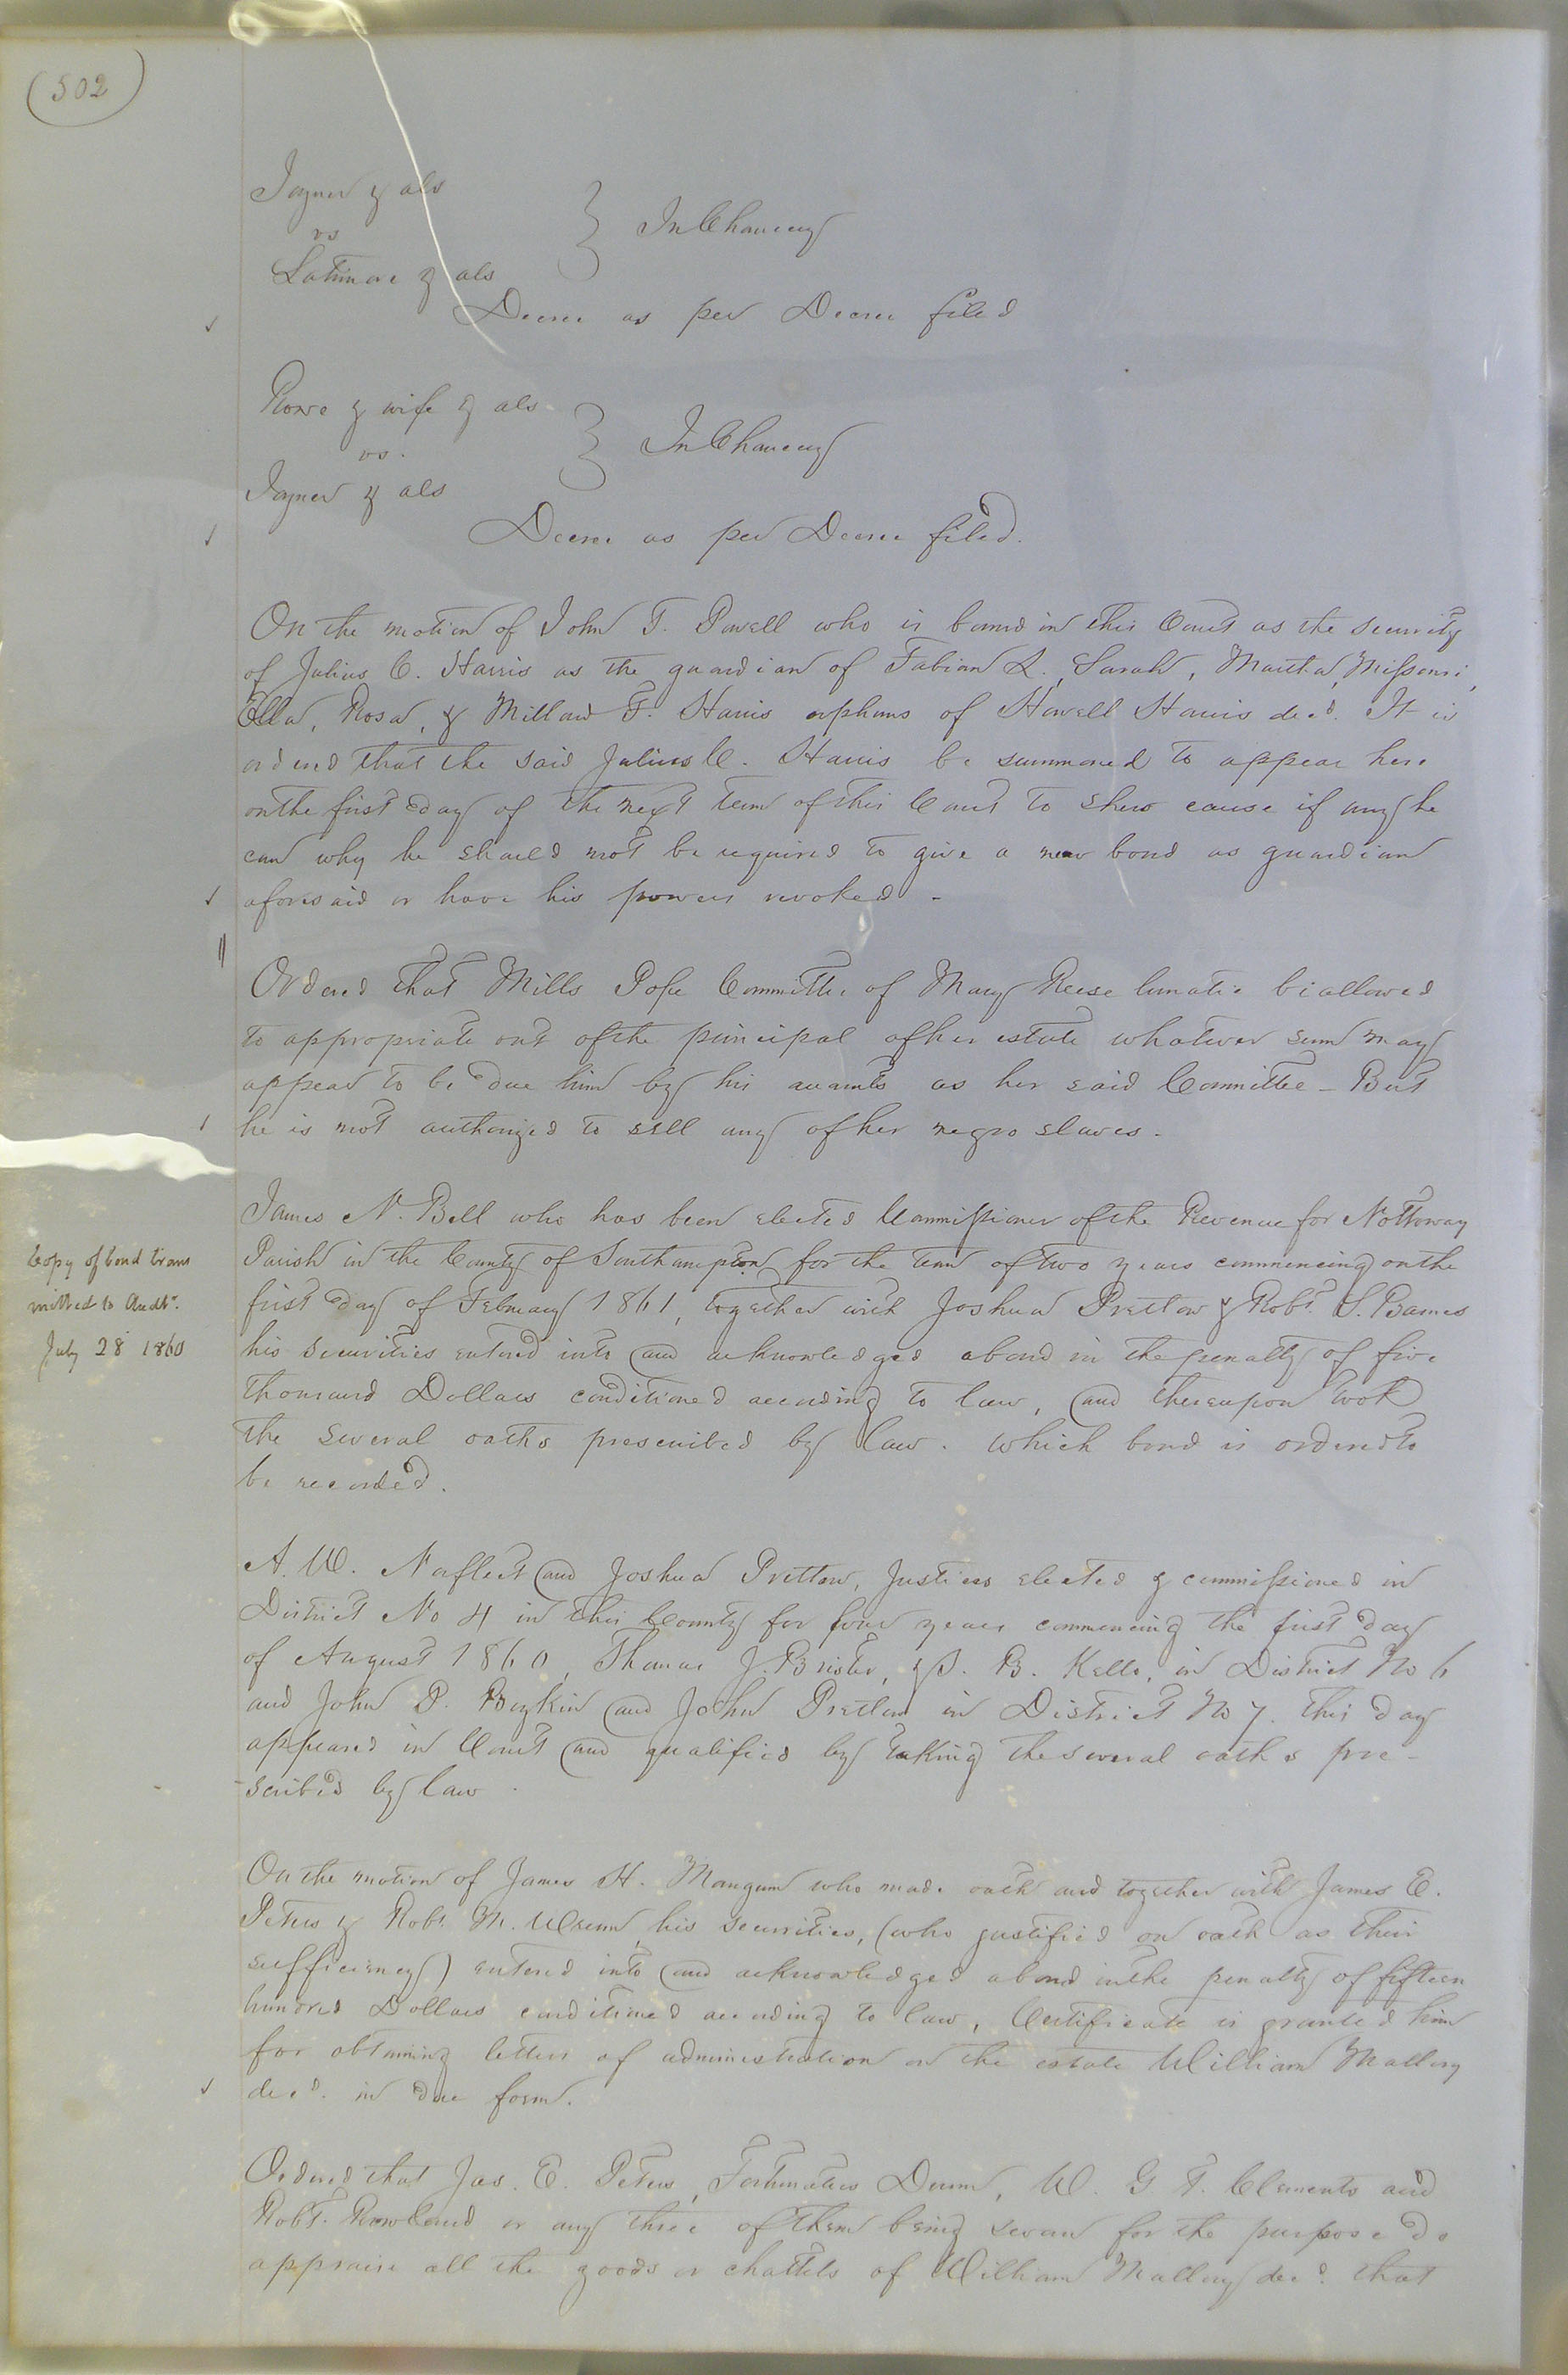 (502)
Joyner & als
vs
Latimore & als
} In Chancery
Decree as per Decree filed
Rowe & wife & als
vs.
Joyner & als
} In Chancery
Decree as per Decree filed.
On the motion of John T. Powell who is bound in this Court as the security
of Julius C. Harris as the guardian of Fabian L., Sarah, Martha, Missouri,
Ella, Rosa, & Millard F. Harris orphans of Howell Harris decd. It is
ordered that the said Julius C. Harris be summoned to appear here
on the first day of the next term of this Court to shew cause if any he
can why he should not be required to give a new bond as guardian
aforesaid or have his powers revoked -
Ordered that Mills Pope Committee of Mary Reese lunatic be allowed
to appropriate out of the principal of her estate whatever sum may
appear to be due him by his accounts as her said Committee - But
he is not authorized to sell any of her negro slaves -
James N. Bell who has been elected Commissioner of the Revenue for Nottoway
Parish in the County of Southampton for the term of two years commencing on the
first day of February 1861, together with Joshua Pretlow & Robt. S. Barnes
his securities entered into and acknowledged a bond in the penalty of five
thousand Dollars conditioned according to law, and thereupon took
the several oaths prescribed by law. which bond is ordered to
be recorded.
Copy of bond trans
mitted to Audtr.
July 28 1860
A. W. Norfleet and Joshua Pretlow, Justices elected & commissioned in
District No 4 in this County for four years commencing the first day
of August 1860, Thomas J. Brister, & S. B. Kello, in District No 6
and John D. Boykin and John Pretlow in District No 7. this day
appeared in Court and qualified by taking the several oaths pre-
-scribed by law.
On the motion of James H. Mangum who made oath and together with James E.
Peters & Robt. M. Wrenn his securities, (who justified on oath as their
sufficiency) entered into and acknowledged a bond in the penalty of fifteen
hundred Dollars conditioned according to law, Certificate is granted him
for obtaining letters of administration on the estate William Mallory
decd. in due form.
Ordered that Jas. E. Peters, Fortunatus Drum, W. G. F. Clements and
Robt. Rowland or any three of them being sworn for the purpose do
appraise all the goods or chattels of William Mallory decd. that